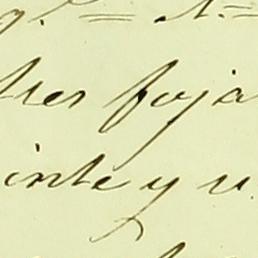 tres foja
inte y u